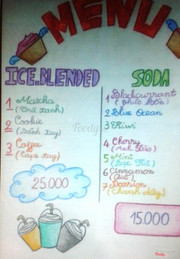 MENU
ICE.BLENDED
1 Matcha
(Trà xanh)
2 Cookie
(Bánh Quy)
3 Coffee
(Cafe đay)
25.000
SODA
1 Blackcurrant
(Phúc bồn)
2 Blue Ocean
3 Kiwi
4 Cherry
5 Mint
(Bạc Hà)
6 Cinnamon
(Quế)
7 Passion
(Chanh dây)
15.000
Foody